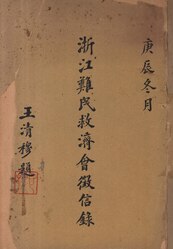 庚辰冬月
浙江難民救濟會徵信錄
王清穆題